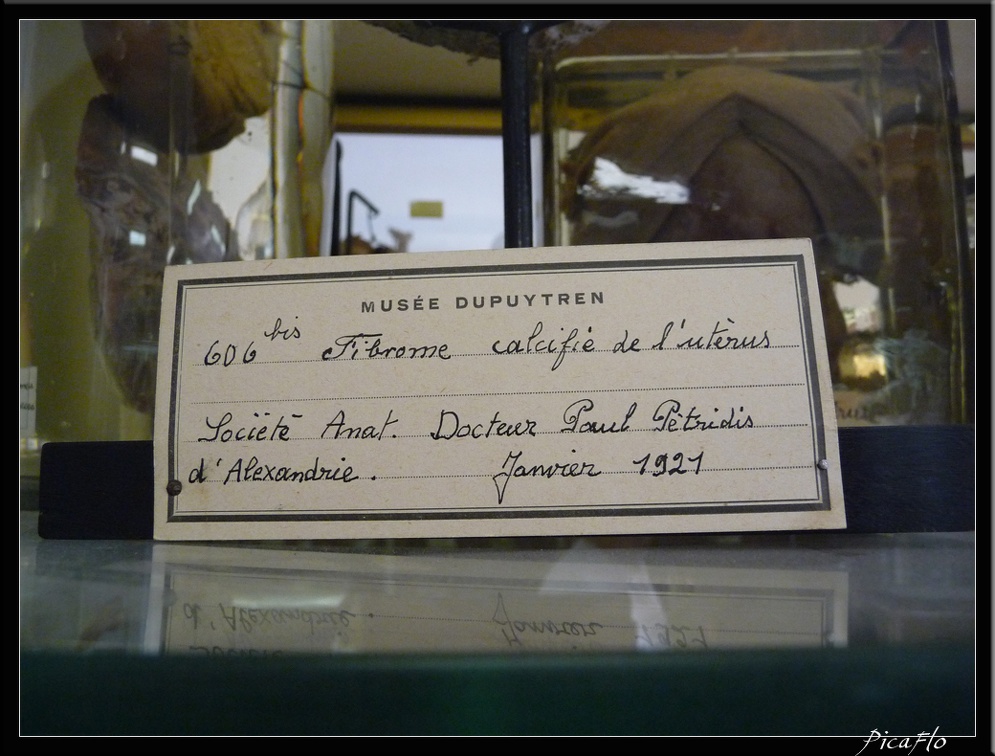 MUSÉE DUPUYTREN
606 bis Fibrome calcifié de l'utérus
Société Anat. Docteur Paul Pétridis
d'Alexandrie. Janvier 1921
PicaFlo